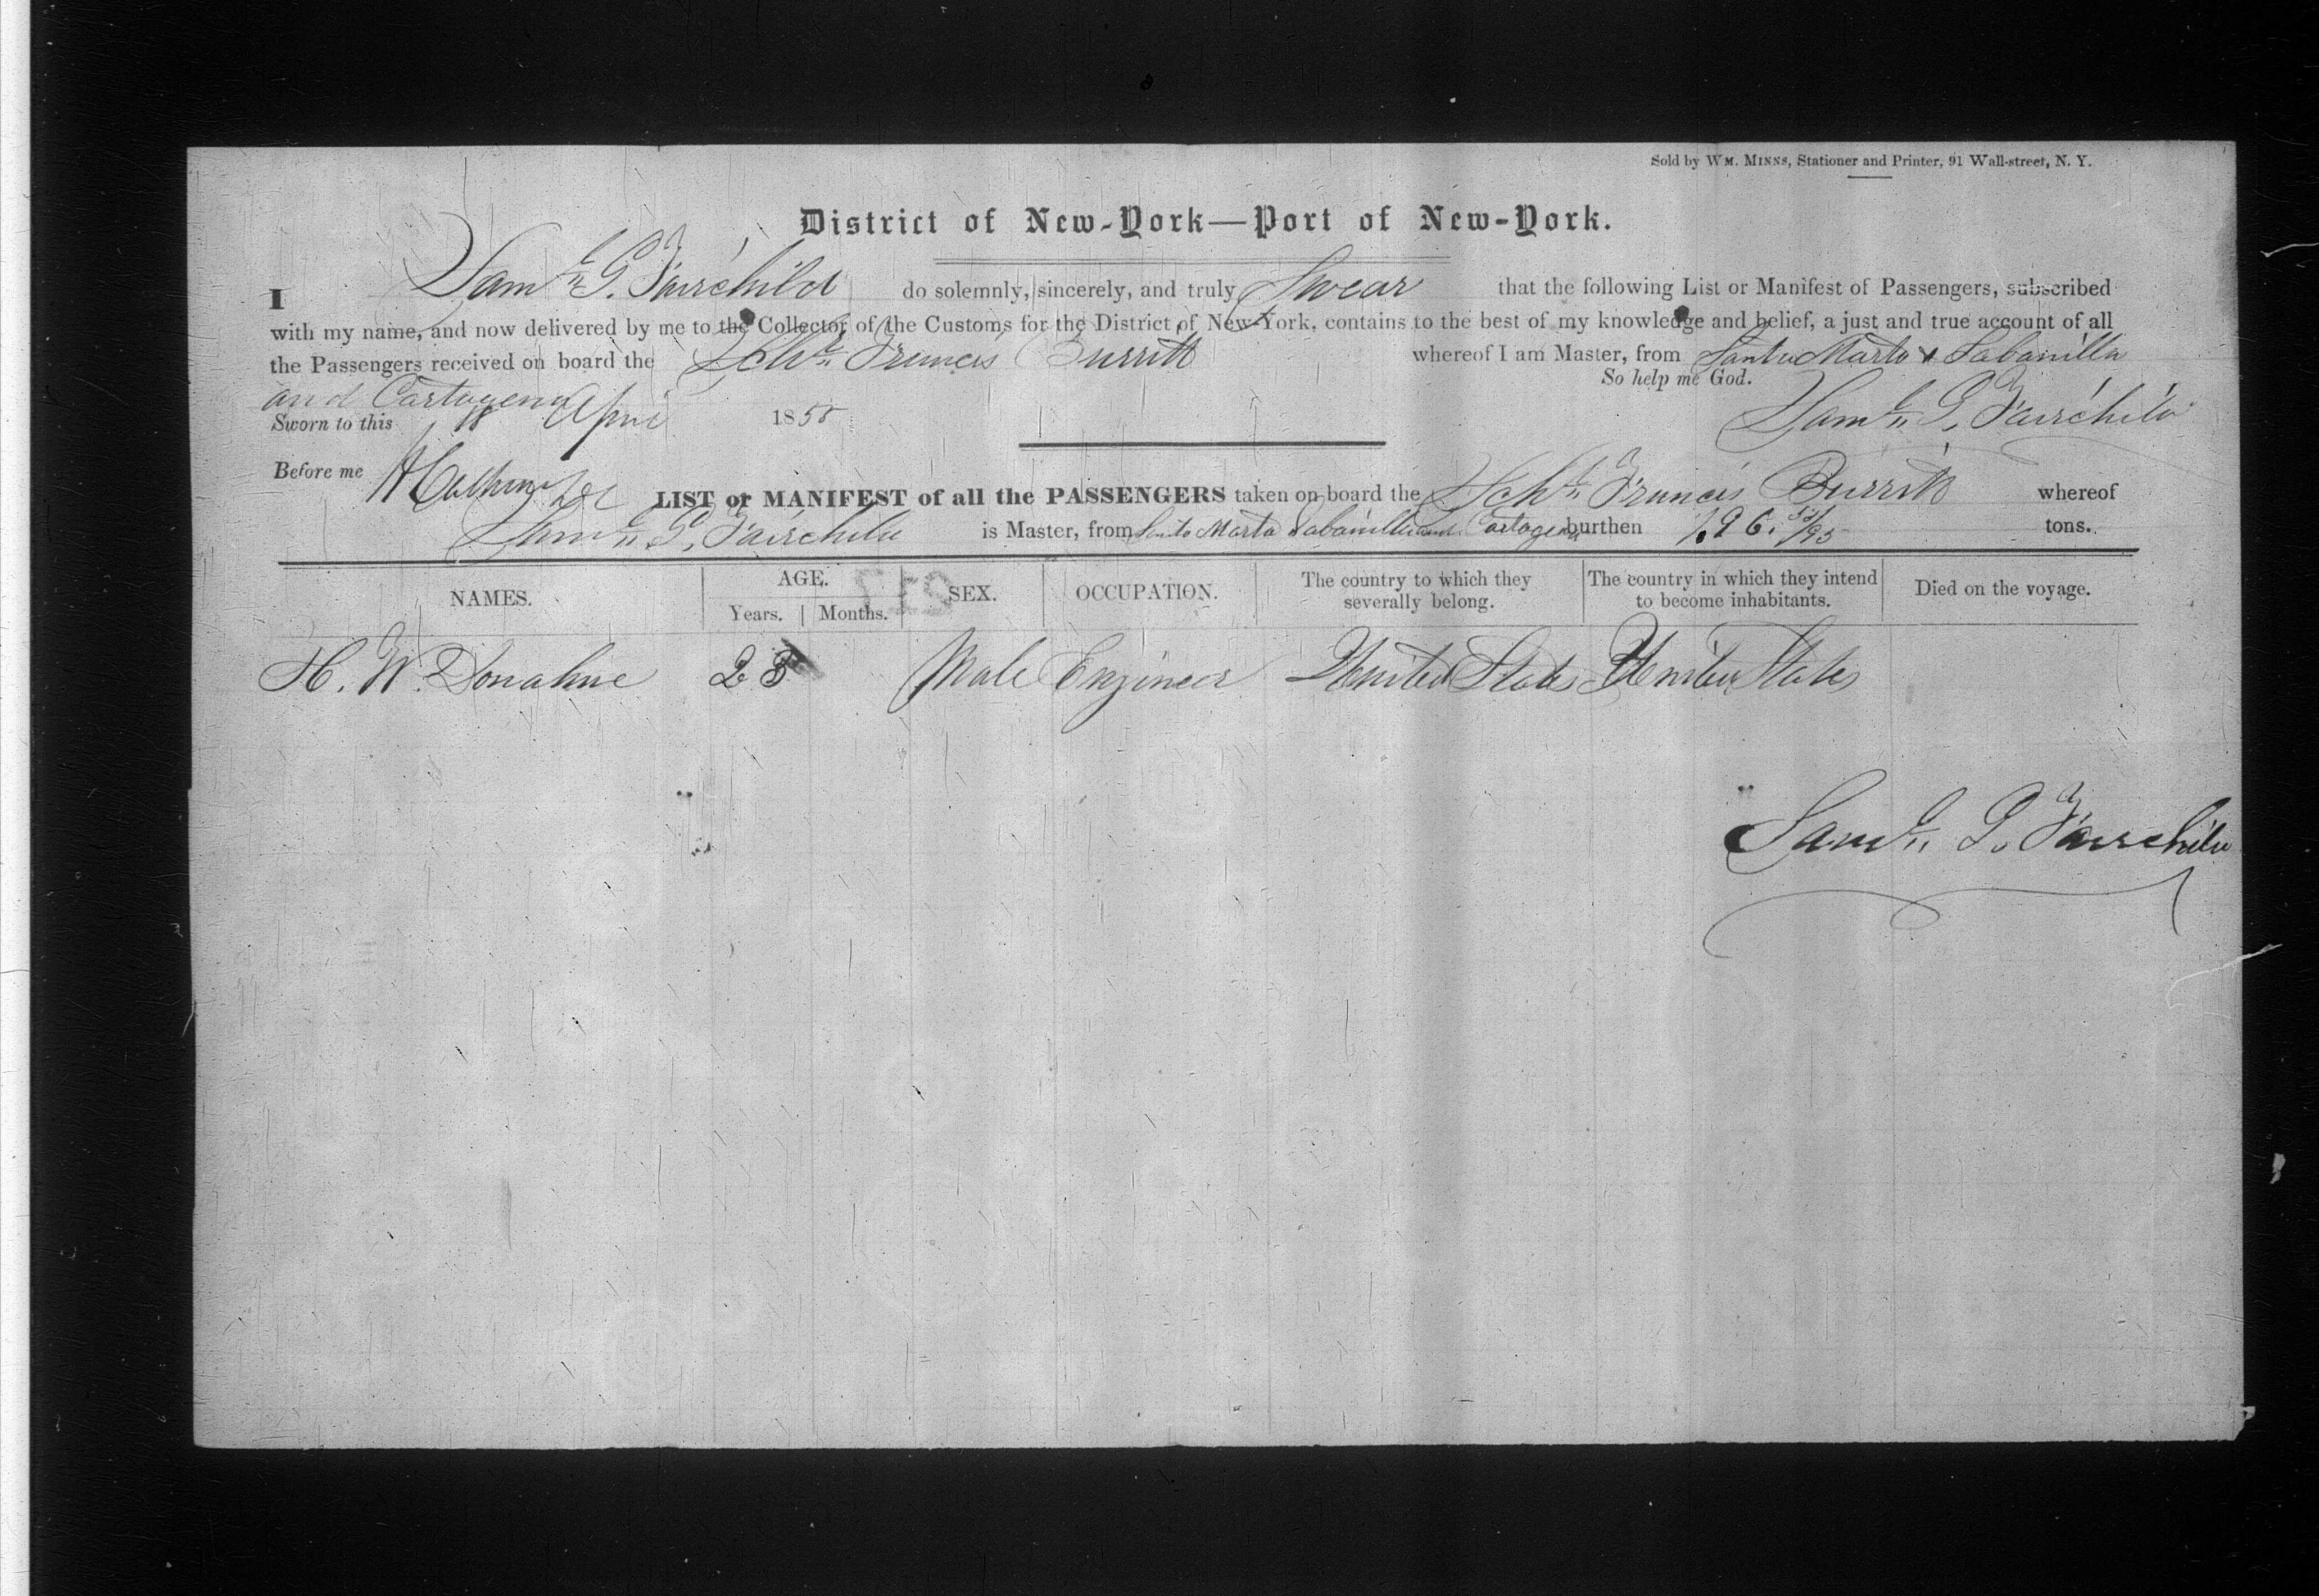 Sold by WM. MINNS, Stationer and Printer, 91 Wall-street, N. Y.
District of New-York—Port of New-York.
I Saml. G. Fairchild do solemnly, sincerely, and truly Swear that the following List or Manifest of Passengers, subscribed
with my name, and now delivered by me to the Collector of the Customs for the District of New-York, contains to the best of my knowledge and belief, a just and true account of all
the Passengers received on board the Schr. Francis Burritt whereof I am Master, from Santa Marta & Sabanilla
and Cartagena So help me God.
Sworn to this 18 April 1855 Saml. G. Fairchild
Before me
LIST or MANIFEST of all the PASSENGERS taken on board the Schr. Francis Burritt whereof
Saml. G. Fairchild is Master, from Santa Marta Sabanilla and Cartagena burthen 196. /95 tons.
NAMES. AGE. SEX. OCCUPATION. The country to which they severally belong. The country in which they intend to become inhabitants. Died on the voyage.
Years. Months.
H. W. Donahue 23 Male Engineer United States United States
Saml. G. Fairchild